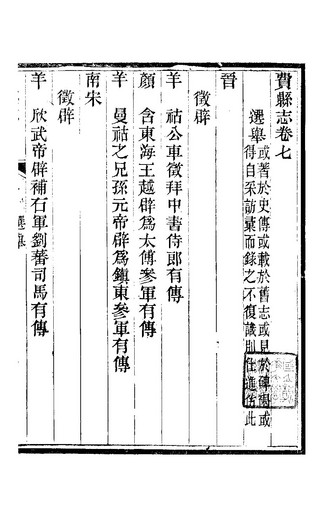 費縣志卷七
選舉或著於史傳或載於舊志或見於碑碣或
得自采訪彙而錄之不復識別仕進估此
晉
徵辟
羊祜公車徵拜中書侍郎有傳
顏含東海王越辟為太傅參軍有傳
羊曼祜之兄孫元帝辟為鎮東參軍有傳
南宋
徵辟
羊欣武帝辟補右軍劉蕃司馬有傳
選舉